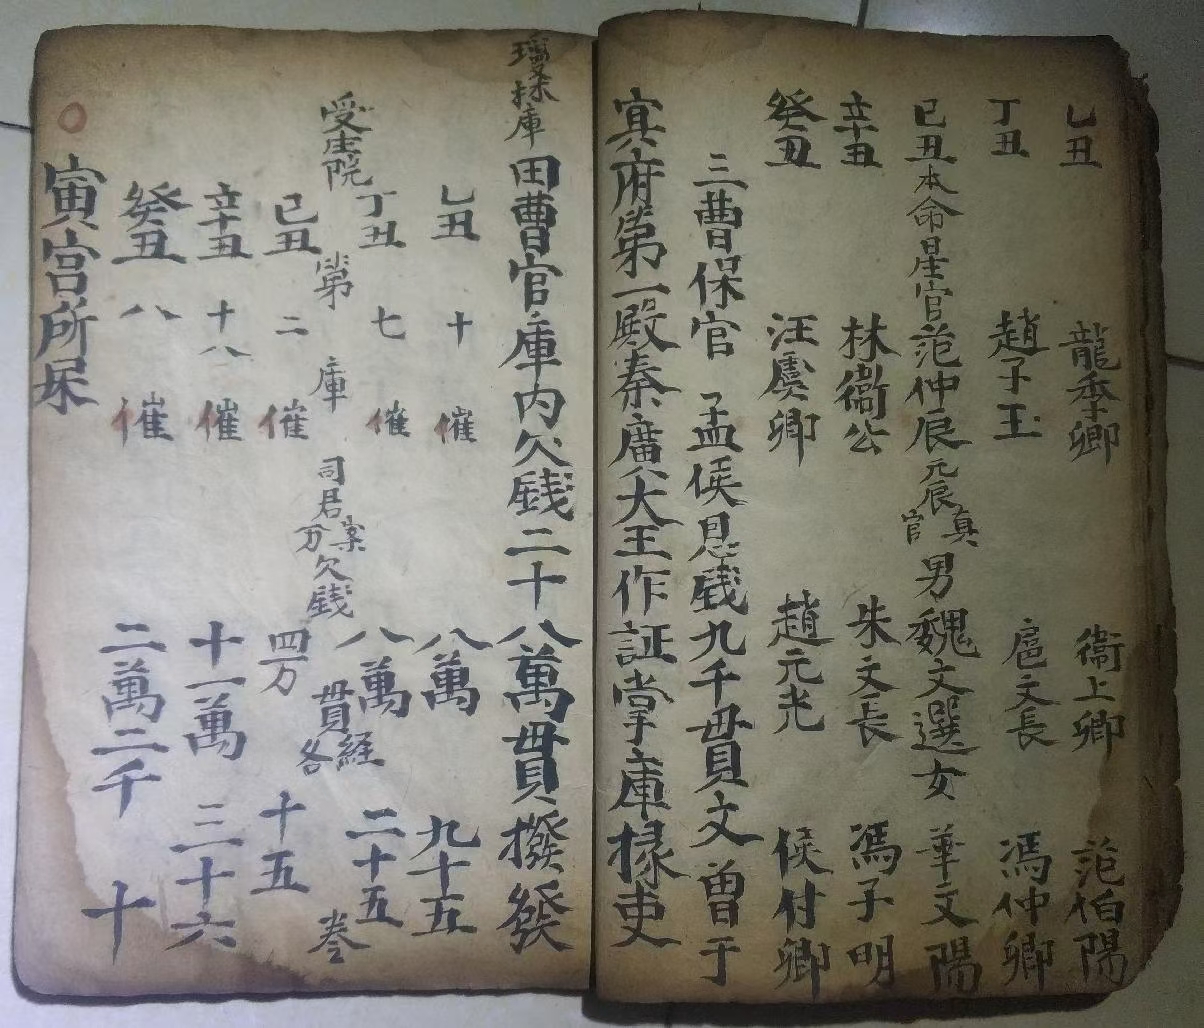 乙丑 龍季卿 衞上卿 范伯陽
丁丑 趙子玉 扈文長 馮仲卿
己丑本命星官范仲辰元辰真官男魏文選女華文陽
辛丑 林衞公 朱文長 馮子明
癸丑 汪虞卿 趙元光 侯付卿
三曹保官 孟侯恩錢九千貫文曾于
冥府第一殿秦廣大王作証掌庫掾吏
瓊林庫田曹官庫内欠錢二十八萬貫撥發
乙丑 十 催 八萬 九十五
丁丑 七 催 八萬 二十五
受生院 第 庫 司君 案 万 欠錢 貫 各 経 卷
己丑 二 催 四万 十五
辛丑 十八 催 十一萬 三十六
癸丑 八 催 二萬二千 十
寅宮所屎